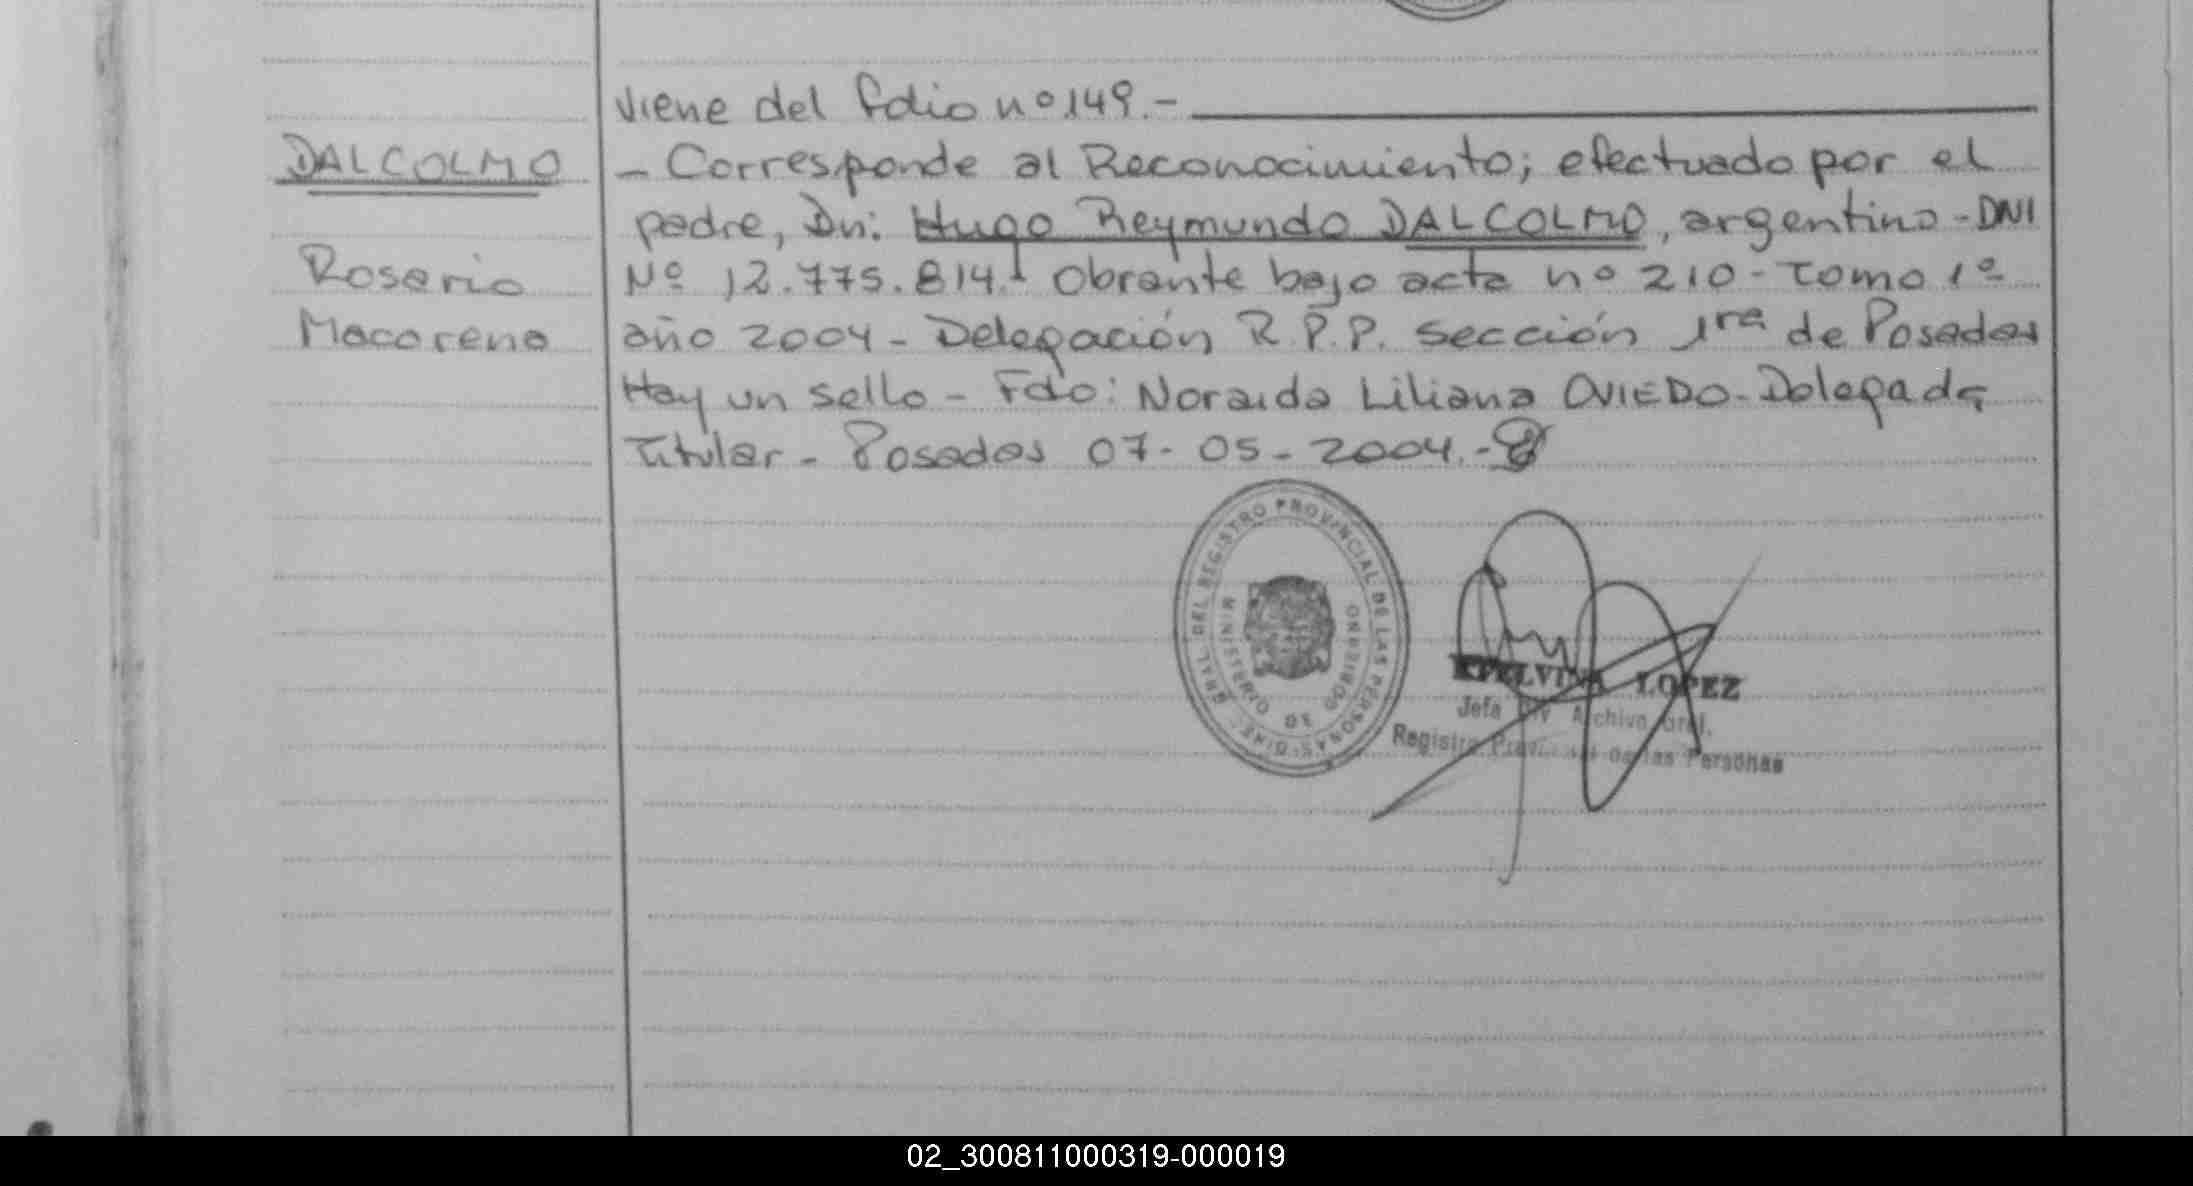 viene del folio nº 149.-
DALCOLMO
Rosario
Macarena
- Corresponde al Reconocimiento; efectuado por el
padre, Dn: Hugo Reymundo DALCOLMO, argentino - DNI
Nº 12.775.814.- Obrante bajo acta nº 210 - Tomo 1º
año 2004 - Delegación R.P.P. sección 1ra de Posadas
Hay un sello - Fdo: Noraida Liliana OVIEDO - Delegada
Titular - Posadas 07-05-2004.-
GRAL. DEL REGISTRO PROVINCIAL DE LAS PERSONAS
MINISTERIO DE GOBIERNO
LOPEZ
Jefa Div Archivo Gral.
Registro Provincial de las Personas
02_300811000319-000019